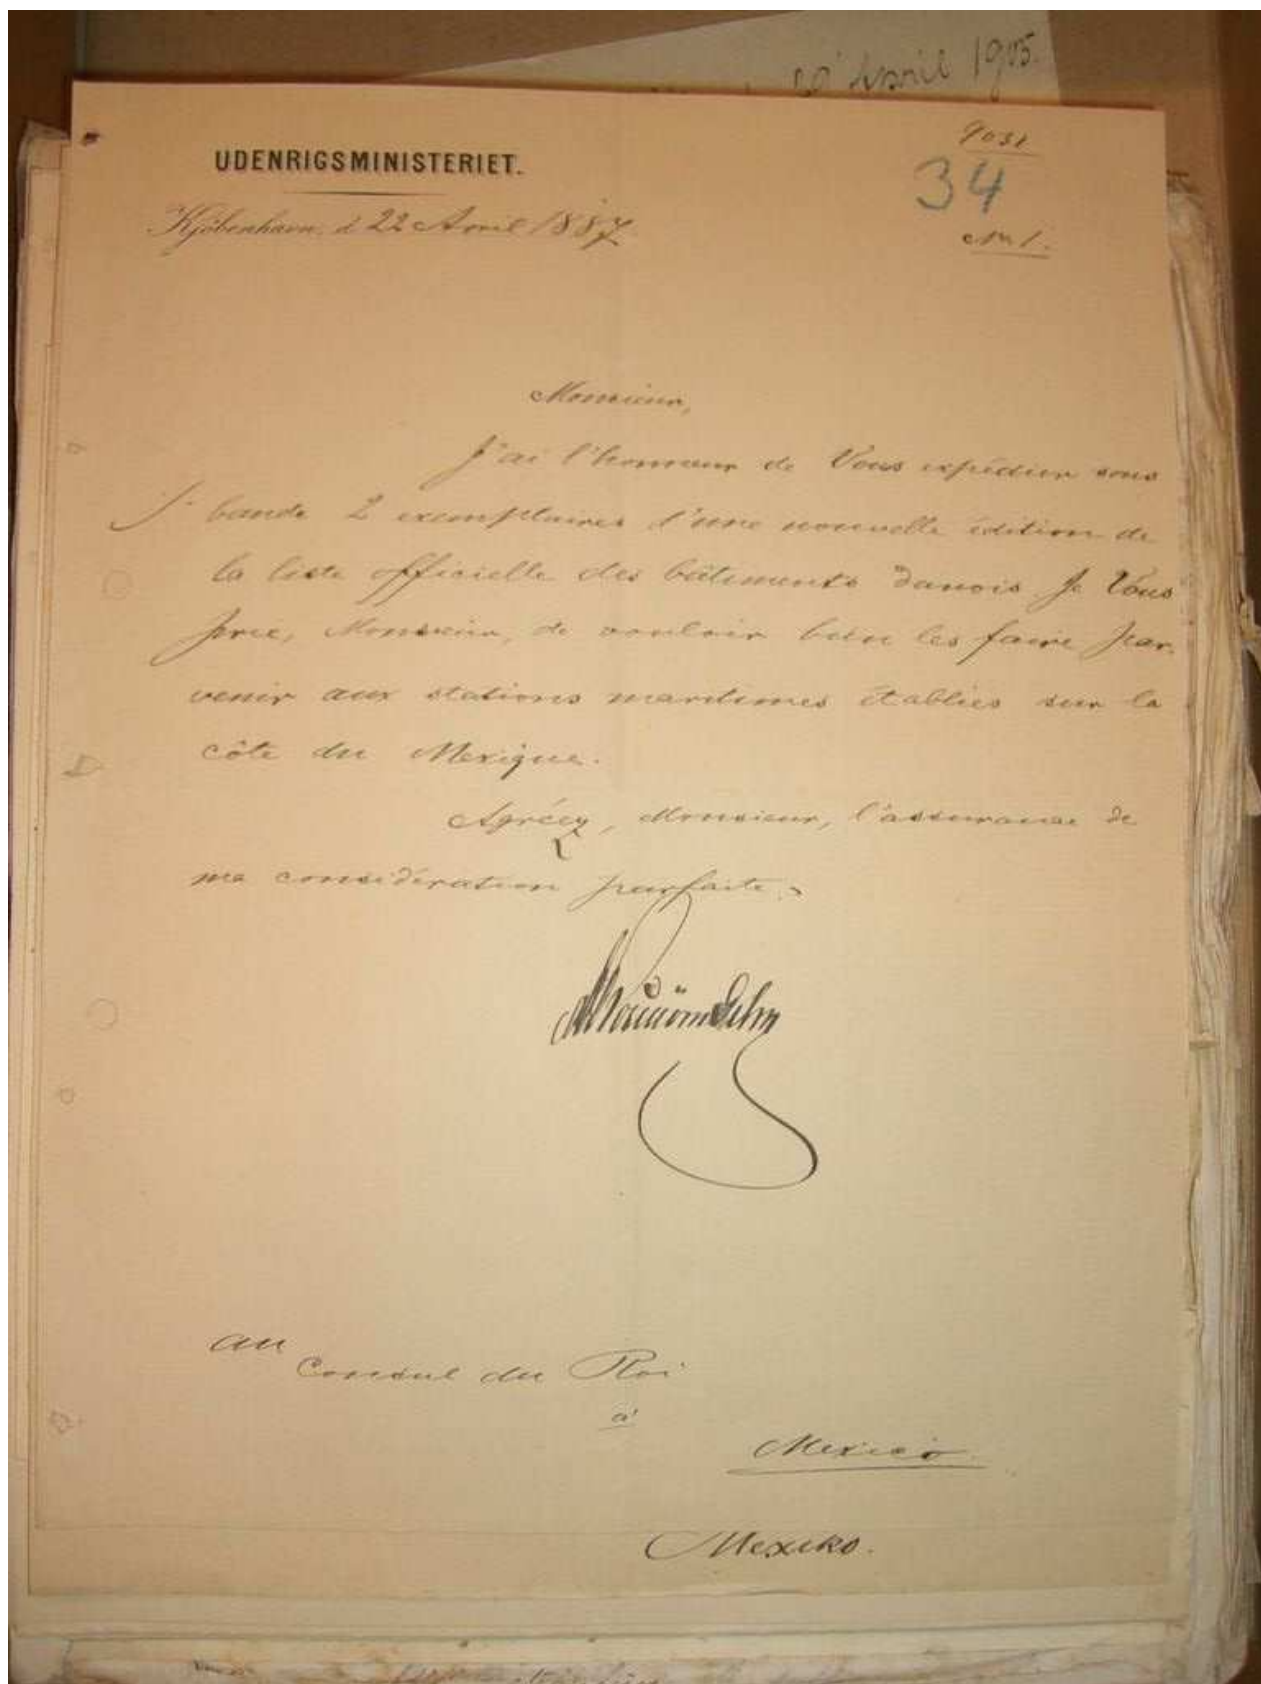 20 Avril 1905.
9031
34
UDENRIGSMINISTERIET.
Kjöbenhavn, d 22 Avril 1887
No 1.
Monsieur,
J'ai l'honneur de Vous expédier sous
bande 2 exemplaires d'une nouvelle édition de
la liste officielle des bâtiments danois. Je Vous
prie, Monsieur, de vouloir bien les faire par-
venir aux stations maritimes établies sur la
côte du Mexique.
Agréez, Monsieur, l'assurance de
ma considération parfaite.
au
Consul du Roi
à
Mexico.
Mexiko.